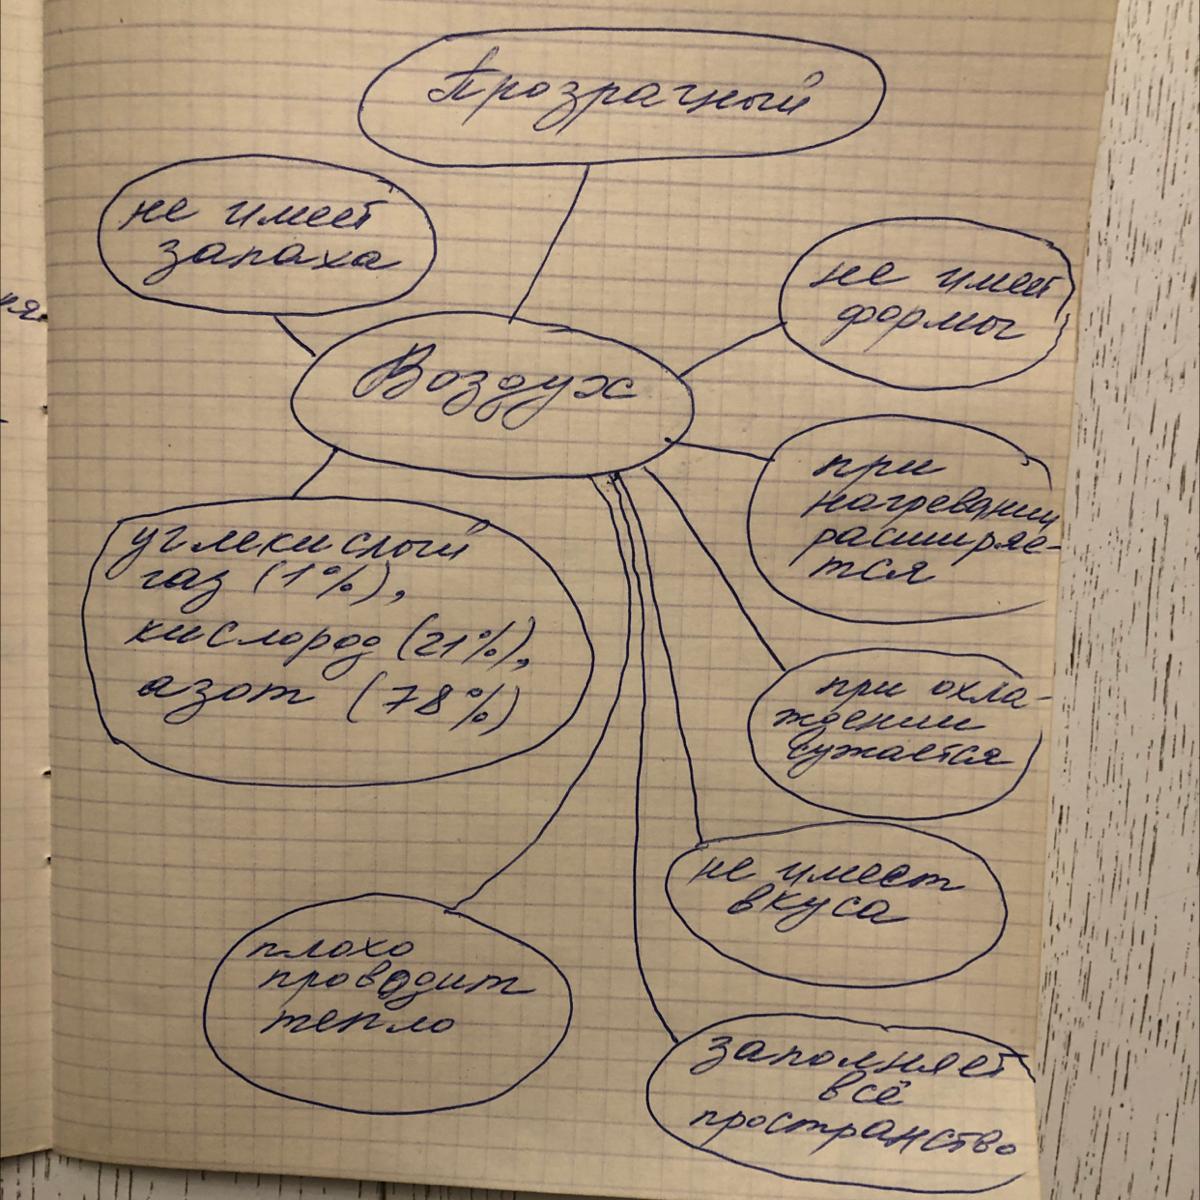 Прозрачный
не имеет
запаха
не имеет
формы
Воздух
при
нагревании
расширяе-
тся
углекислый
газ (1%),
кислород (21%),
азот (78%)
при охла-
ждении
сужается
не имеет
вкуса
плохо
проводит
тепло
заполняет
всё
пространство